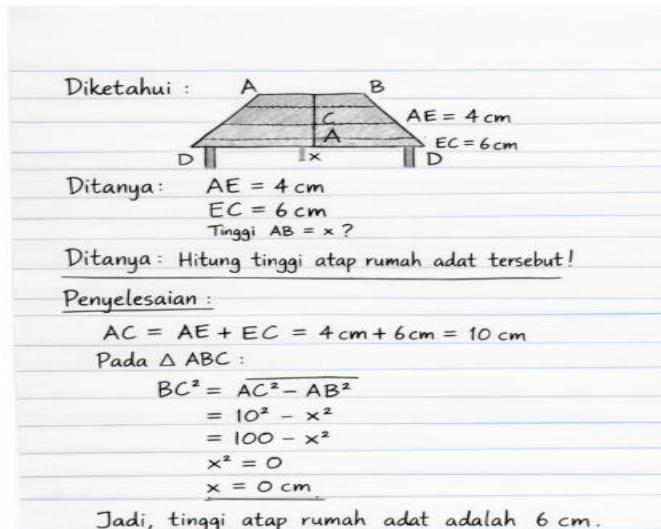 Diketahui :
A B
C AE = 4 cm
A EC = 6 cm
D x D
Ditanya: AE = 4 cm
EC = 6 cm
Tinggi AB = x ?
Ditanya: Hitung tinggi atap rumah adat tersebut!
Penyelesaian :
AC = AE + EC = 4 cm + 6 cm = 10 cm
Pada △ ABC :
BC² = AC² – AB²
= 10² – x²
= 100 – x²
x² = 0
x = 0 cm
Jadi, tinggi atap rumah adat adalah 6 cm.